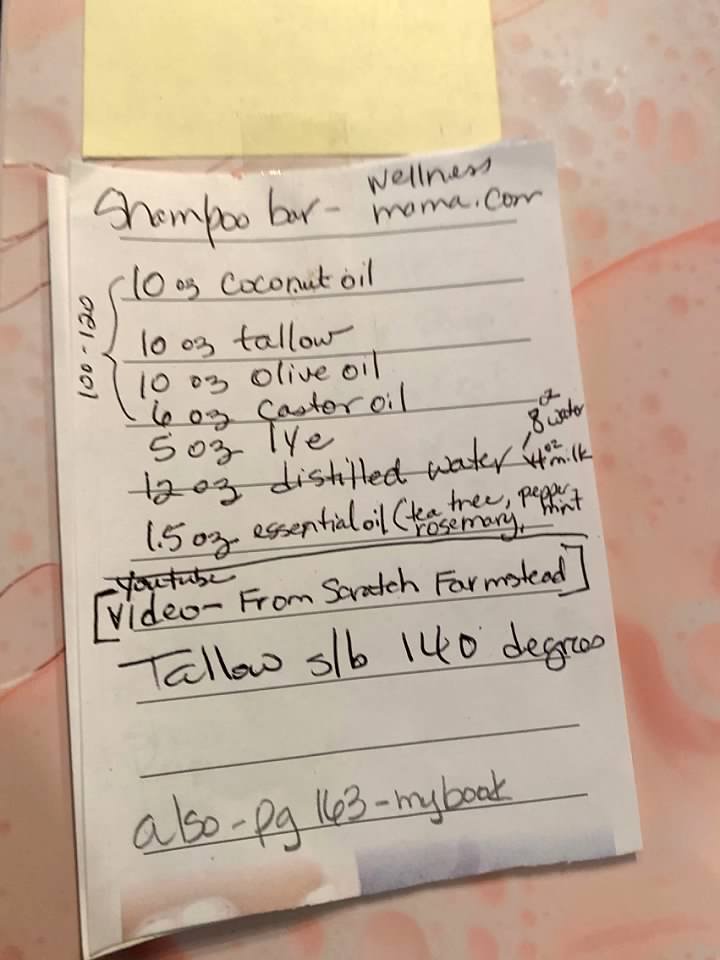 Shampoo bar - wellness
mama.com
100-120
10 oz coconut oil
10 oz tallow
10 oz olive oil
6 oz castor oil
5 oz lye
12 oz distilled water / 8 oz water
4 oz milk
1.5 oz essential oil (tea tree, pepper
rosemary, mint
youtube
[Video - From Scratch Farmstead]
Tallow s/b 140 degrees
also - pg 163 - my book